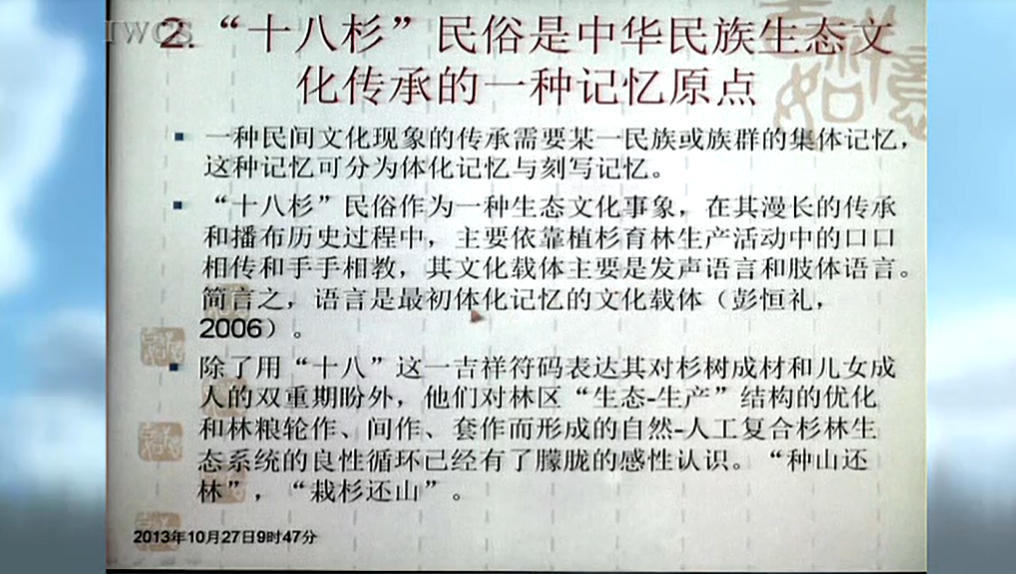 IWCS
2.“十八杉”民俗是中华民族生态文
化传承的一种记忆原点
一种民间文化现象的传承需要某一民族或族群的集体记忆,
这种记忆可分为体化记忆与刻写记忆。
“十八杉”民俗作为一种生态文化事象，在其漫长的传承
和播布历史过程中，主要依靠植杉育林生产活动中的口口
相传和手手相教，其文化载体主要是发声语言和肢体语言。
简言之，语言是最初体化记忆的文化载体（彭恒礼，
2006）。
除了用“十八”这一吉祥符码表达其对杉树成材和儿女成
人的双重期盼外，他们对林区“生态-生产”结构的优化
和林粮轮作、间作、套作而形成的自然-人工复合杉林生
态系统的良性循环已经有了朦胧的感性认识。“种山还
林”，“栽杉还山”。
2013年10月27日9时47分